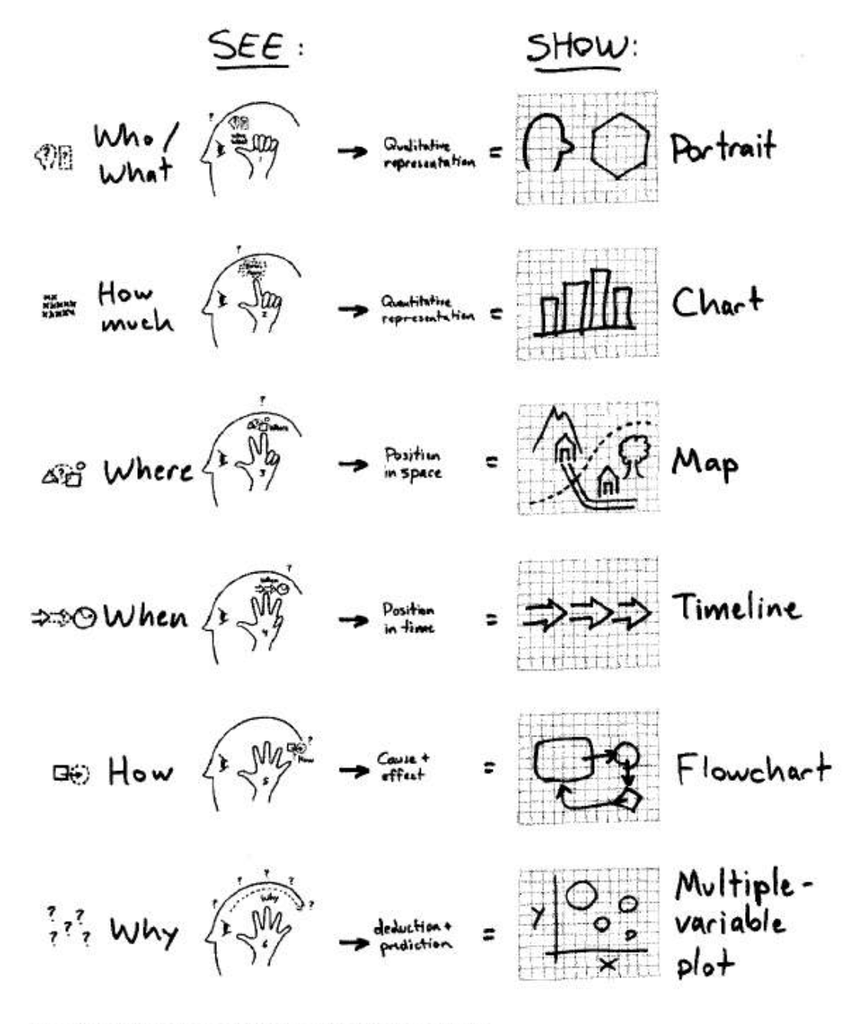 SEE:
SHOW:
Who/
What
1
Qualitative
representation
=
Portrait
How
much
2
Quantitative
representation
=
Chart
Where
Where
3
Position
in space
=
Map
When
When
4
Position
in time
=
Timeline
How
How
5
Cause +
effect
=
Flowchart
Why
Why
6
deduction +
prediction
=
Y
X
Multiple-
variable
plot